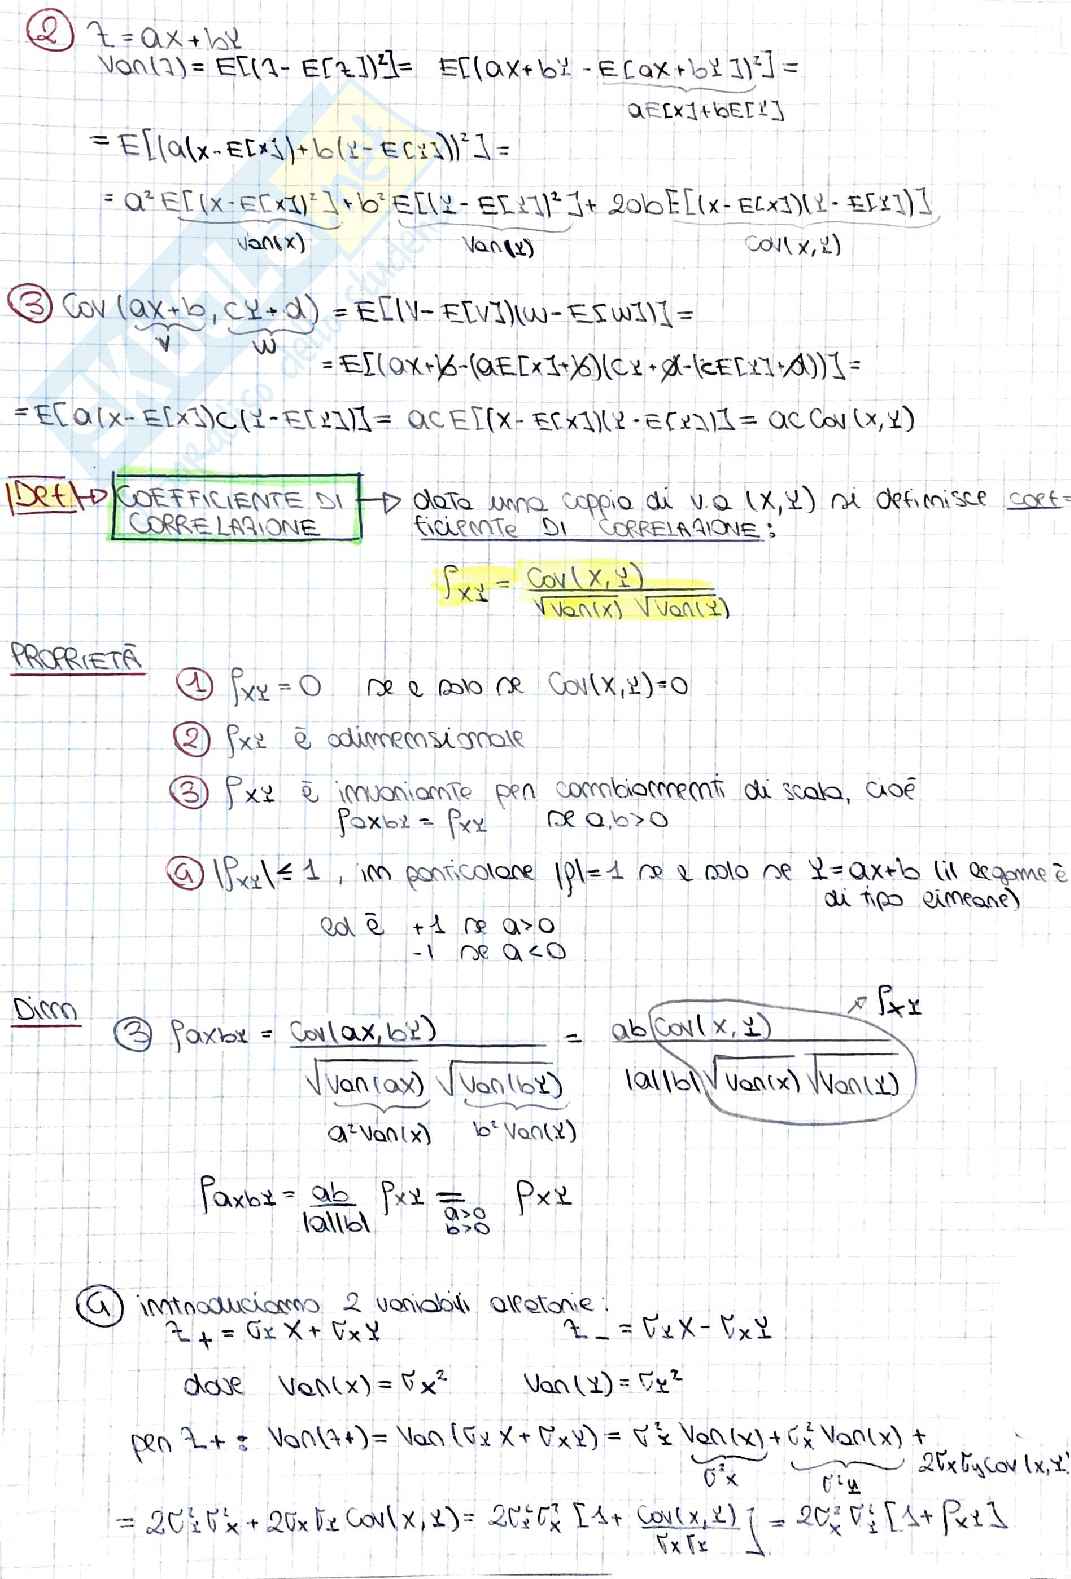 ② Z = aX + bY
Var(Z) = E[(Z - E[Z])²] = E[(aX + bY - E[aX + bY])²] =
aE[X] + bE[Y]
= E[(a(X - E[X]) + b(Y - E[Y]))²] =
= a² E[(X - E[X])²] + b² E[(Y - E[Y])²] + 2ab E[(X - E[X])(Y - E[Y])]
Var(X) Var(Y) Cov(X,Y)
③ Cov(aX + b, cY + d) = E[(V - E[V])(W - E[W])] =
V W
= E[(aX + b - (aE[X] + b)(cY + d - (cE[Y] + d))] =
= E[a(X - E[X])c(Y - E[Y])] = ac E[(X - E[X])(Y - E[Y])] = ac Cov(X,Y)
Def → COEFFICIENTE DI CORRELAZIONE → data una coppia di v.a (X,Y) si definisce coef-
ficiente DI CORRELAZIONE:
ρXY = Cov(X,Y) / √Var(X) √Var(Y)
PROPRIETÀ
① ρXY = 0 se e solo se Cov(X,Y) = 0
② ρXY è adimensionale
③ ρXY è invariante per cambiamenti di scala, cioè
ρaXbY = ρXY se a,b > 0
④ |ρXY| ≤ 1, in particolare |ρ| = 1 se e solo se Y = aX + b (il legame è
di tipo lineare)
ed è +1 se a > 0
-1 se a < 0
Dim
③ ρaXbY = Cov(aX, bY) / √Var(aX) √Var(bY) = ab Cov(X,Y) / |a||b| √Var(X) √Var(Y) ↗ ρXY
a² Var(X) b² Var(Y)
ρaXbY = ab / |a||b| ρXY = ρXY
a>0
b>0
④ introduciamo 2 variabili aleatorie:
Z+ = σY X + σX Y Z- = σY X - σX Y
dove Var(X) = σX² Var(Y) = σY²
per Z+ : Var(Z+) = Var(σY X + σX Y) = σ²Y Var(X) + σ²X Var(X) +
2σXσy cov(X,Y)
σ²X σ²Y
= 2σ²Y σ²X + 2σX σY Cov(X,Y) = 2σ²Y σ²X [1 + Cov(X,Y) / σX σY] = 2σ²X σ²Y [1 + ρXY]